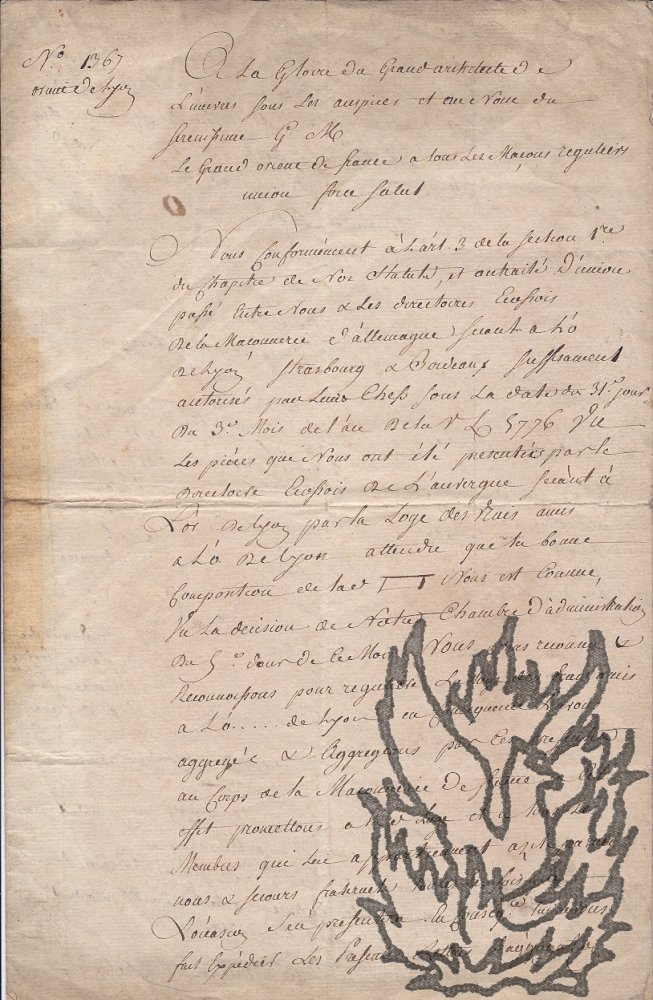 N.º 1367
orient de Lyon
A La Gloire du Grand architecte de
L'univers sous Les auspices et au Nom du
serenissime G M
Le Grand orient de france a tous Les Maçons reguliers
union force salut
Nous Conformément à L'art. 3 de la section 1.re
du Chapitre de Nos Statuts, et au traité D'union
passé Entre Nous & Les directoires Ecossois
De la Maconnerie d'allemagne seant a L'O
De Lyon Strasbourg & Bordeaux suffisament
autorisés par Leurs Chefs sous La date du 31.e jour
Du 3.e Mois de L'an De la V L 5776 Vu
Les pièces que Nous ont été presentées par le
Directoire Ecossois De L'auvergne seant à
L'or De Lyon par la Loge des Vrais amis
a L'O De Lyon attendu que la bonne
Composition de lad Nous est Connue,
Vu La decision de Notre Chambre d'administration
Du 5.e Jour de Ce Mois Nous avons reconnu &
Reconnoissons pour reguliere La Loge des vrais amis
a L'O..... de Lyon en Consequence L'avons
aggregée & Aggregeons par Ces presentes
au Corps de la Maconnerie de france a Cet
effet promettons a lad Loge et a
Membres qui Lui appartiennent
nous & secours fraternel
L'ocasion s'en presentera En Conseq.ce
fait Expédier Les